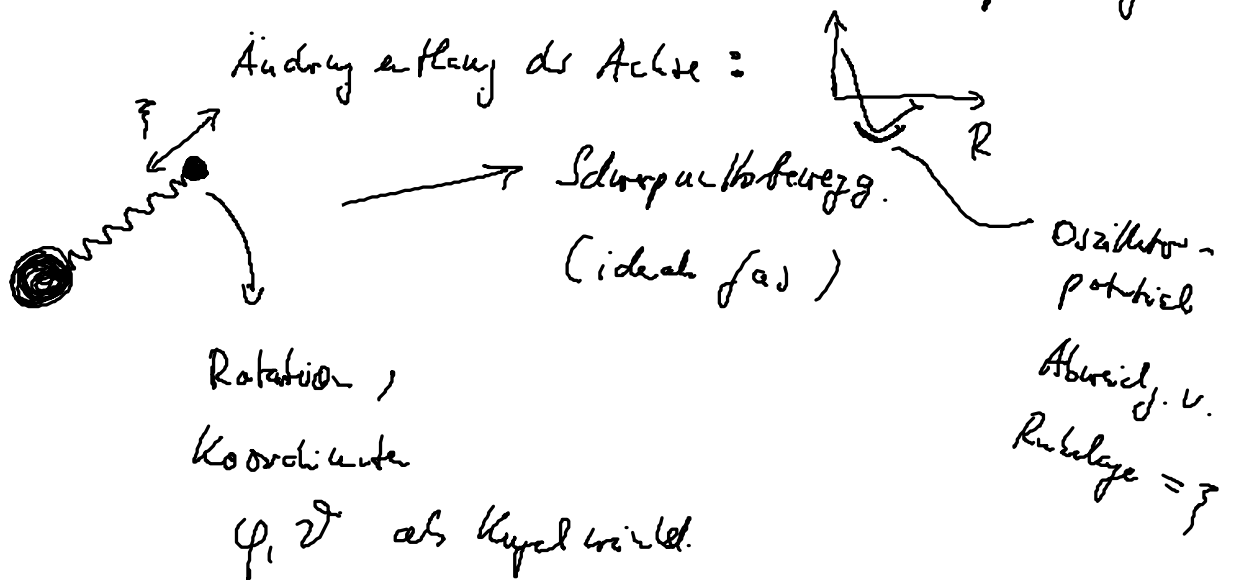 Änderung entlang der Achse :
ξ
R
Schwerpunktsbewegg.
(ideales Gas)
Oszillator-
potential
Abweichg. v.
Ruhelage = ξ
Rotation,
Koordinaten
φ, ϑ als Kugelwinkel.